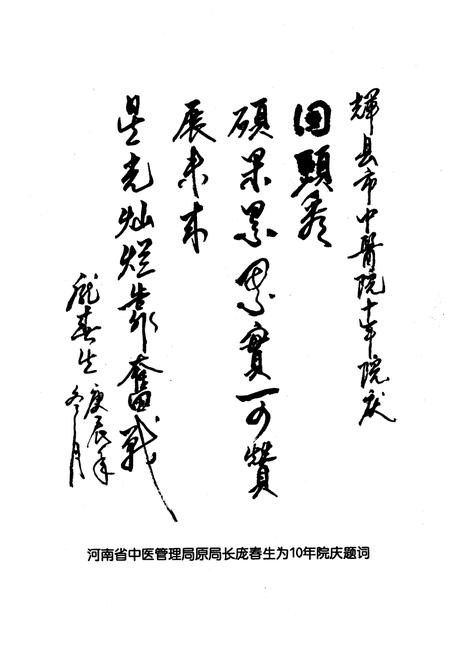 輝县市中醫院十年院庆
回頭看
碩果累累實可贊
展未来
星光灿烂靠奮战
庞春生
庚辰年
冬月
河南省中医管理局原局长庞春生为10年院庆题词